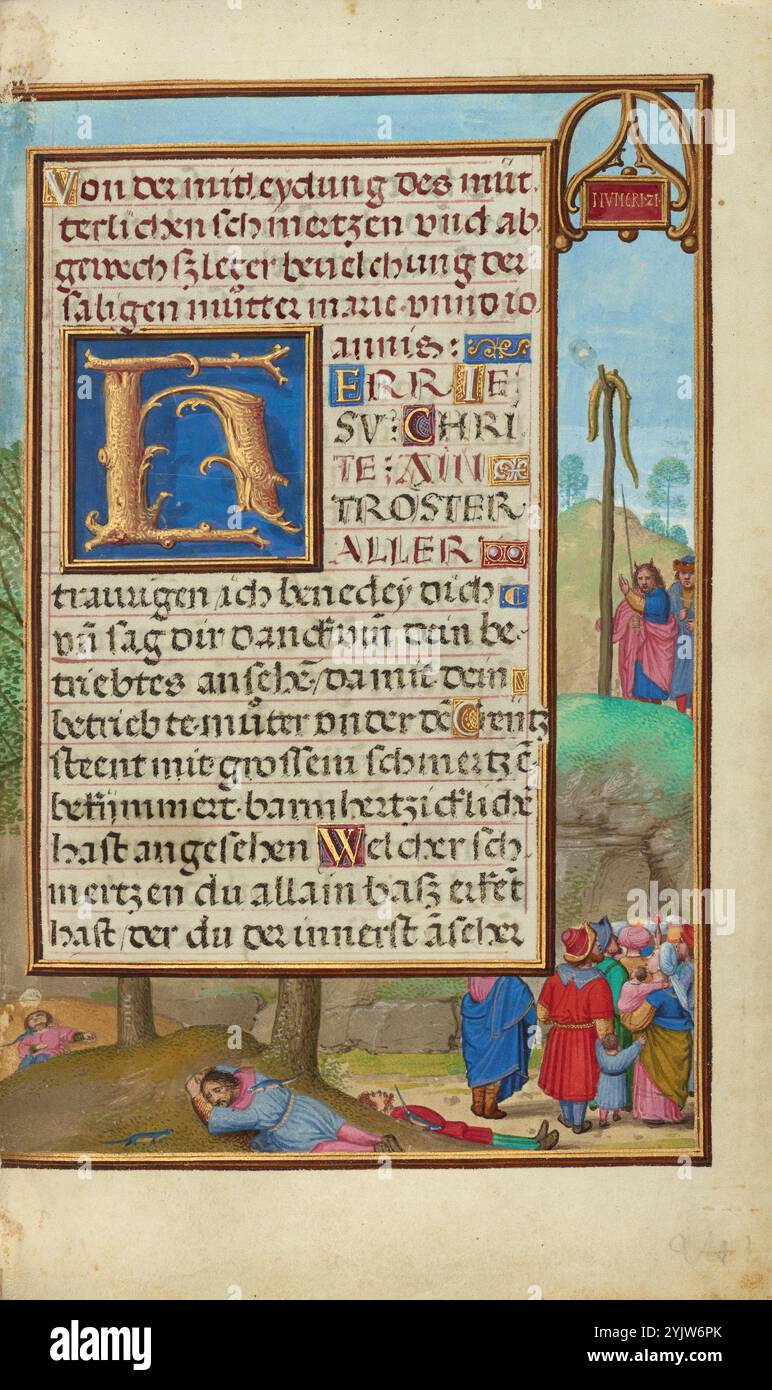 NVMERI·21·
Von der mitleydung des müt.
terlichen schmertzen vnd ab.
gewechszleter beuelchung der
säligen mûtter marie·vnnd io
annis:
HERR IE
SV: CHRI
TE: AIN
TROSTER
ALLER
traurigen ich benedey dich
vñ sag dir danck vm̃ dein be-
triebtes ansehẽ/da mit dein
betriebte·mûter vnder dẽ Creütz
steent mit·grossem schmertzẽ·
bekümmert·barmhertzicklichẽ
hast angesehen Welcher sch.
mertzen du allain basz erkẽt
hast/der du der innerst ãseher
alamy
Image ID: 2YJW6PK
www.alamy.com